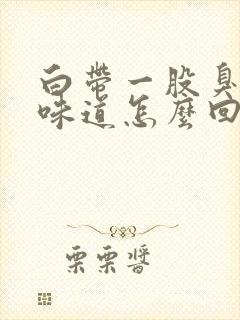 白帶一股臭
味道怎麼回
栗栗醬